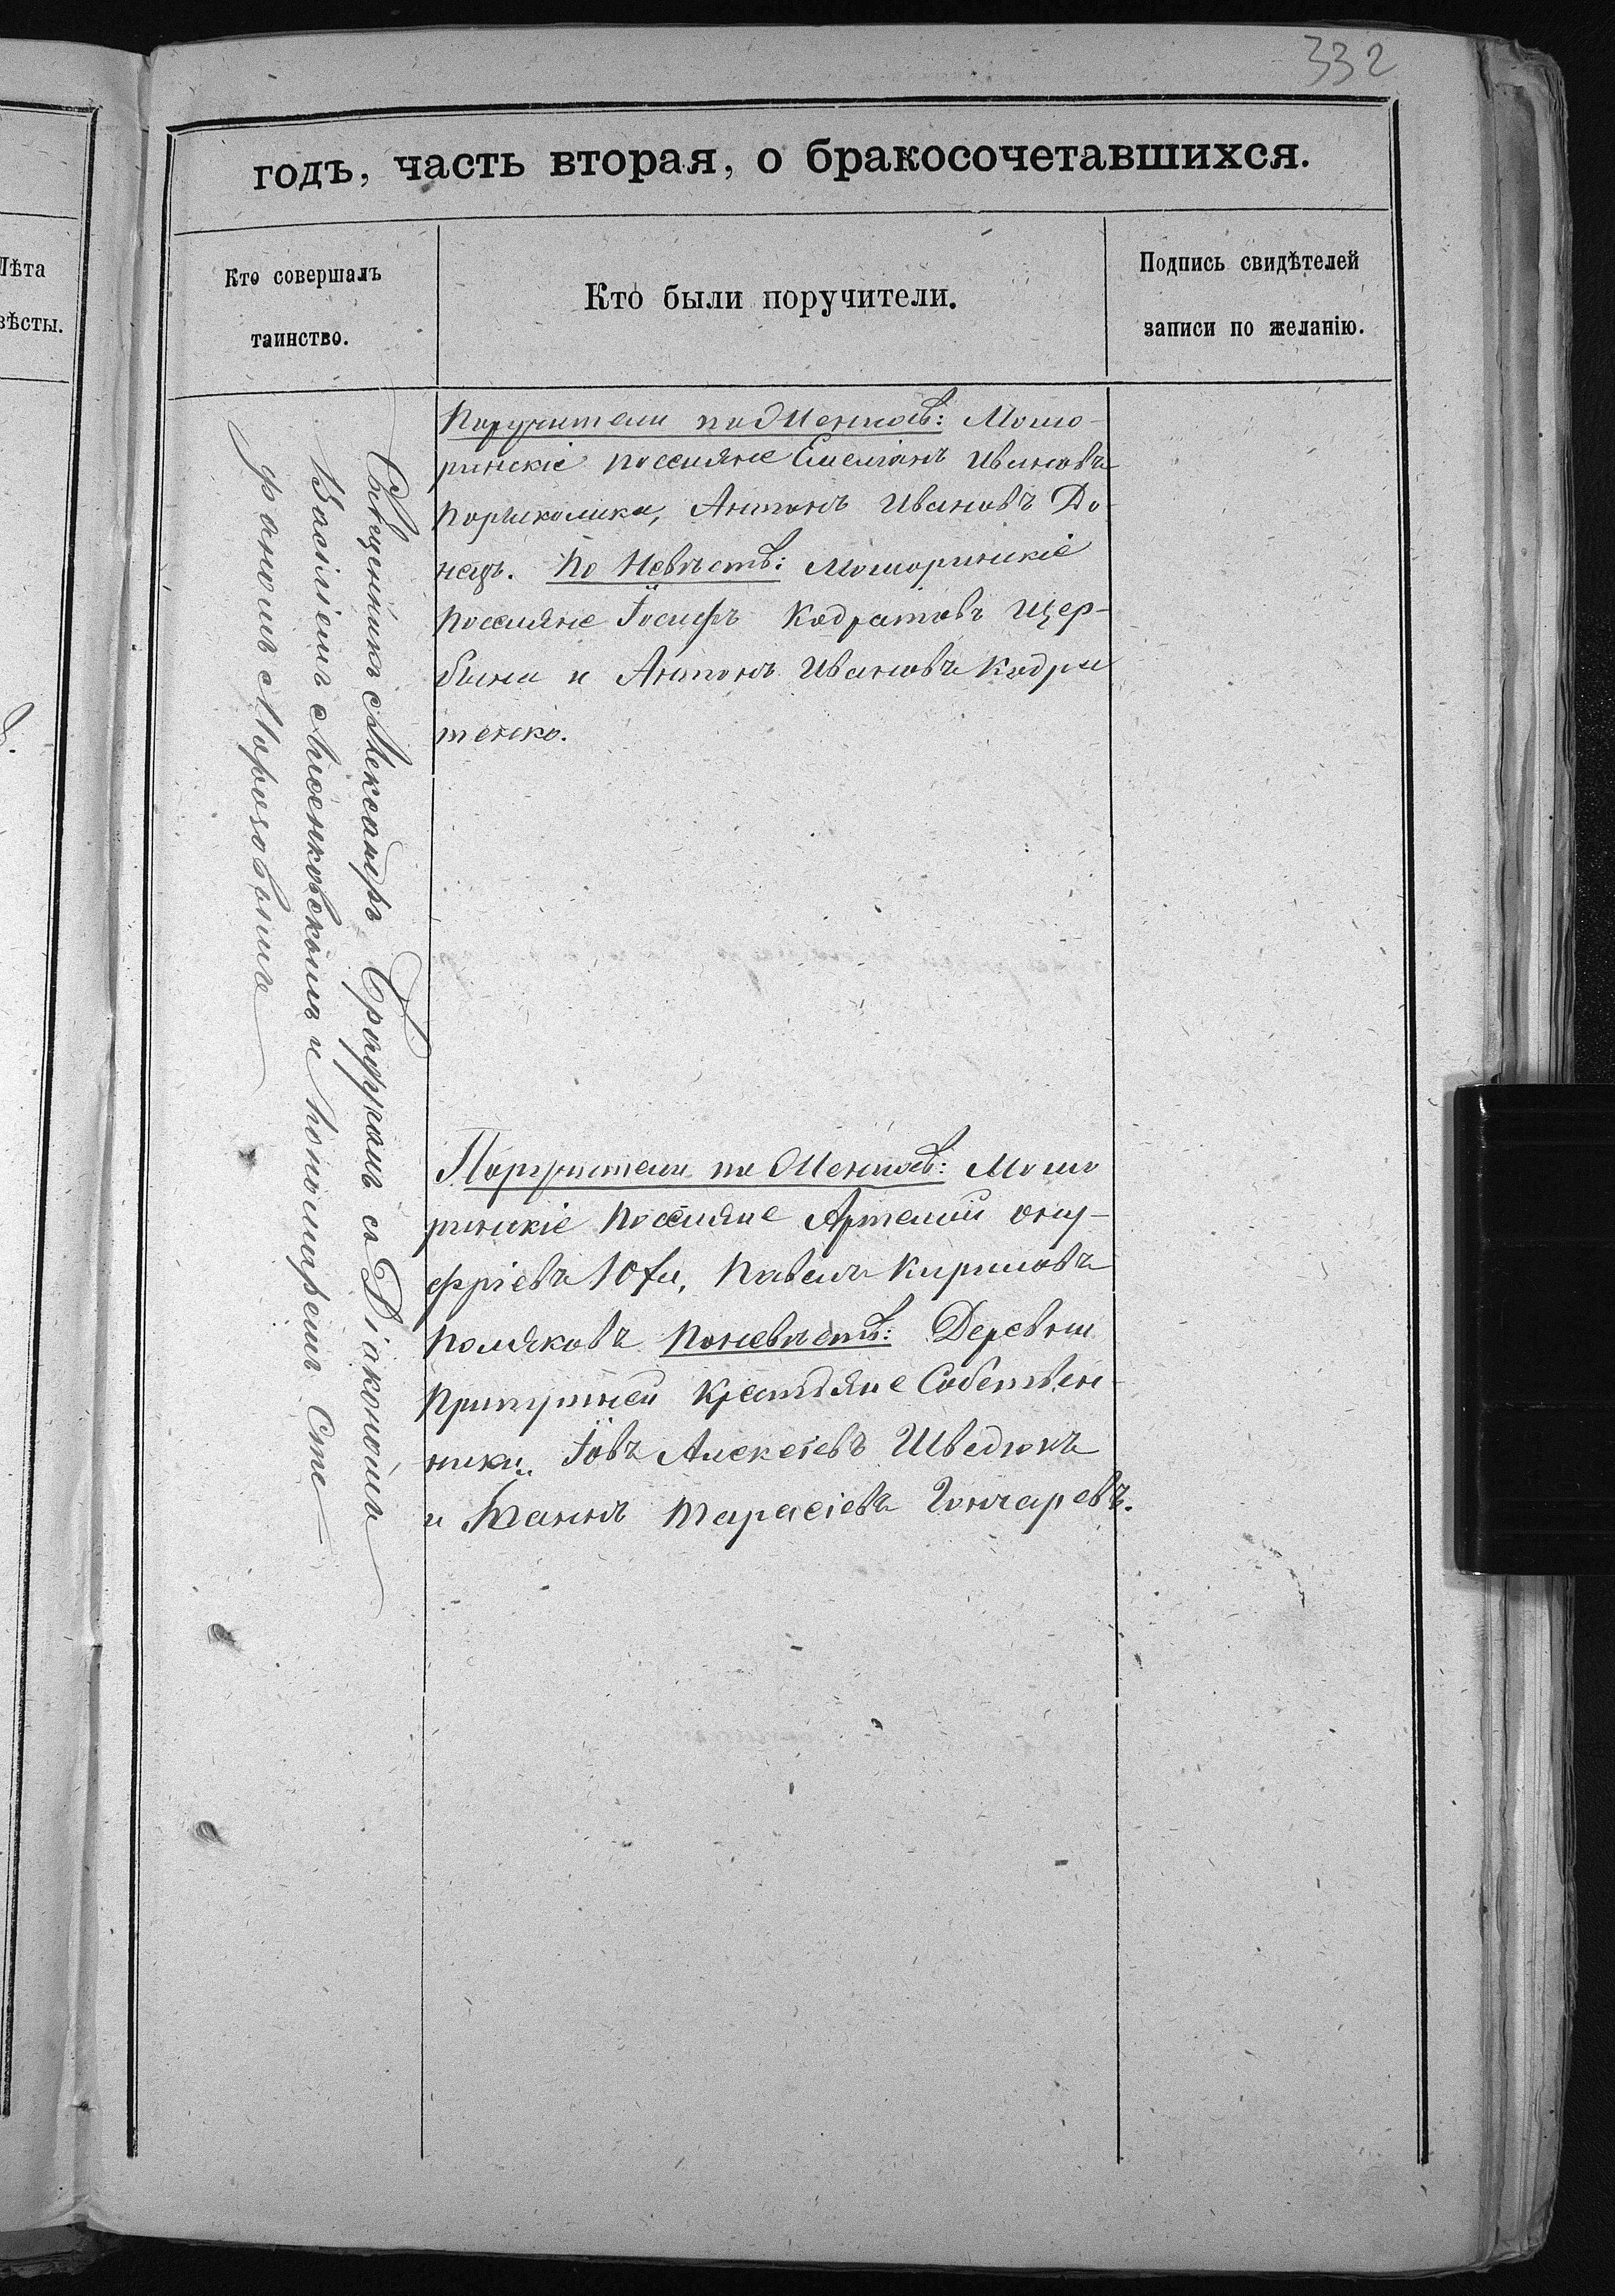 332
годъ, часть вторая, о бракосочетавшихся.
Лѣта
вѣсты.
Кто совершалъ
таинство.
Кто были поручители.
Подпись свидѣтелей
записи по желанію.
Священникъ Александръ с Діакономъ
Василіемъ Лисенковскимъ и пономаремъ Сте
фаномъ Морозовымъ
Поручители по Женихѣ: Мошо-
ринскіе поселяне Емеліанъ Ивановъ
Антонъ Ивановъ До
нецъ. По Невѣстѣ: Мошоринскіе
поселяне Іосифъ Кодратовъ Щер-
бина и Антонъ Ивановъ Кодра
тенко.
Поручители по Женихѣ: Мошо
ринскіе поселяне Артемій Ону-
фріевъ Павелъ Кириловъ
Поляковъ По невѣстѣ: Деревни
крестьяне Собствен-
ники Іовъ Алексіевъ Шведюкъ
и Тарасіевъ Гончаревъ.